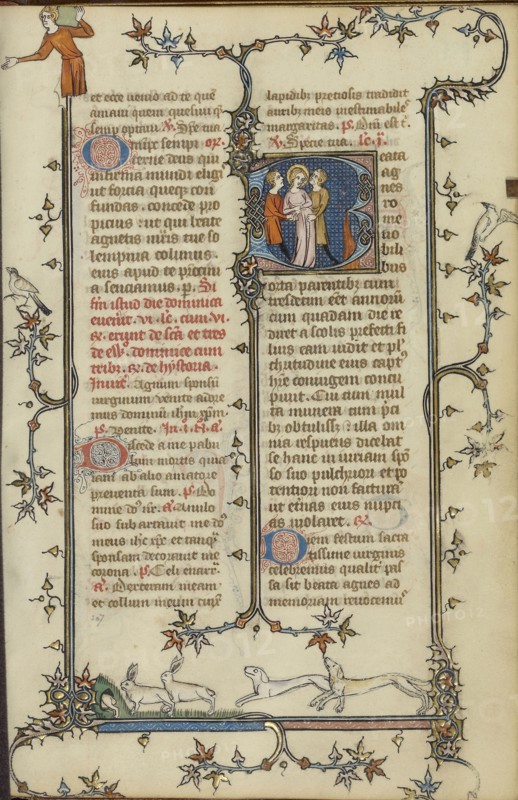 et ecce uenio ad te quē
amaui quem quesiui q̄
semp optaui. V. Spē tua
Omīps sempi. or.
terne deus qui
infirma mundi eligi
ut fortia queqꝫ con
fundas. concede pro
picius: ut qui beate
agnetis mris tue so
lempnia colimus.
eius apud te
sentiamus. p. Si
fm istud die dominica
euenerit. vi. lc. cum vi.
R. erunt de scā. et tres
de ew. dominice cum
tribꝫ. R. de hystoria.
Inuit. Agnum sponsū
uirginum uenite adore
mus dominū ihm xpm.
ps. Uenite. In .i. N. a.
Discede a me pabu
lum mortis quia
iam ab alio amatore
preuenta sum. ps. Do
mine dns nr. a. Anulo
suo subarrauit me dns
meus ihc xpc et tanqꝫ
sponsam decorauit me
corona. ps. Celi enarr.
a. Dexteram meam
et collum meum cinx
lapidibꝫ preciosis tradidit
auribꝫ meis inestimabiles
margaritas. ps. Dnī est t.
V. Specie tua. lc. i.
Beata
ag
nes
ro
me
no
bili
bus
orta parentibꝫ cum
tresdecim eēt annorū
cum quadam die re
diret a scolis prefecti fi
lius eam uidit et pl
chritudine eius capt
hāc coniugem concu
piuit. Cui cum mul
ta munera cum pci
bꝫ obtulisset: illa om
nia respuens dicebat
se hanc iniuriam spō
so suo pulchriori et po
tentiori non facturā
ut eternas eius nupci
as uiolaret. R.
Diem festum sacra
tissime uirginis
celebremus qualit pas
sa sit beata agnes ad
memoriam reuocemus
PHOTO12